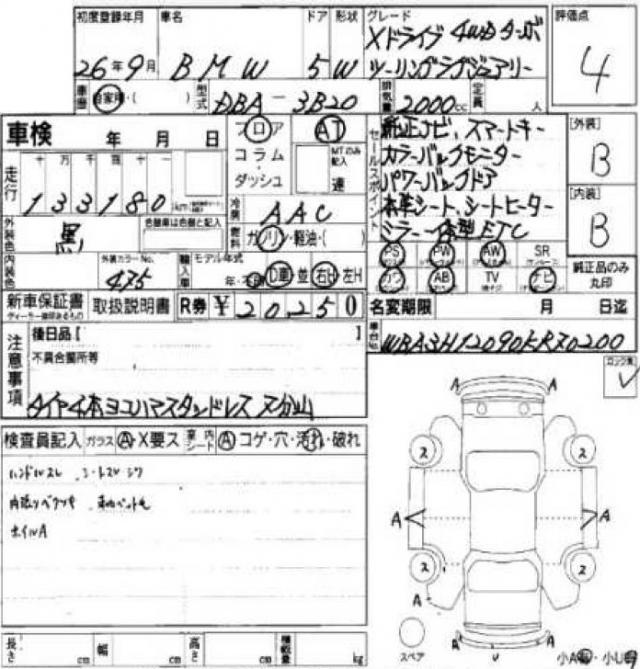 初度登録年月 車名 ドア 形状 グレード 評価点
26年9月 BMW 5 W Xドライブ 4WDターボ
ツーリングラグジュアリー
4
車歴 自家用・( ) 型式 DBA-3B20 排気量 2000cc 定員 人
車検 年 月 日
フロア AT
コラム・
ダッシュ
MTのみ記入
連
セールスポイント
純正ナビ、スマートキー
カラーバックモニター
パワーバックドア
本革シート、シートヒーター
ミラー一体型ETC
[外装]
B
[内装]
B
走行 十 万 千 百 十 一
133180 km
冷房 AAC
外装色 黒
色替車は色替と記入
燃料 ガソリン・軽油・( )
内装色
外装カラーNo.
475
輸入車 モデル年式
年・不明 D車 並 右H 左H
PS PW AW SR
カワ AB TV ナビ
純正品のみ
丸印
新車保証書 取扱説明書 R券 ¥20250
ディーラー捺印あるもの
名変期限 月 日迄
車台No. WBA3H12090KR70200
注意事項
後日品[ ]
不具合箇所等
タイヤ4本ヨコハマスタッドレス 又分山
ロック有
検査員記入 ガラス A・X要ス 室内シート A コゲ・穴・汚れ・破れ
ハンドルスレ、シートスレ シワ
ホイルA
A A
2 2
A A
2 2
A A
A A
スペア
長さ cm 幅 cm 高さ cm 積載量 kg
小A有・小U有